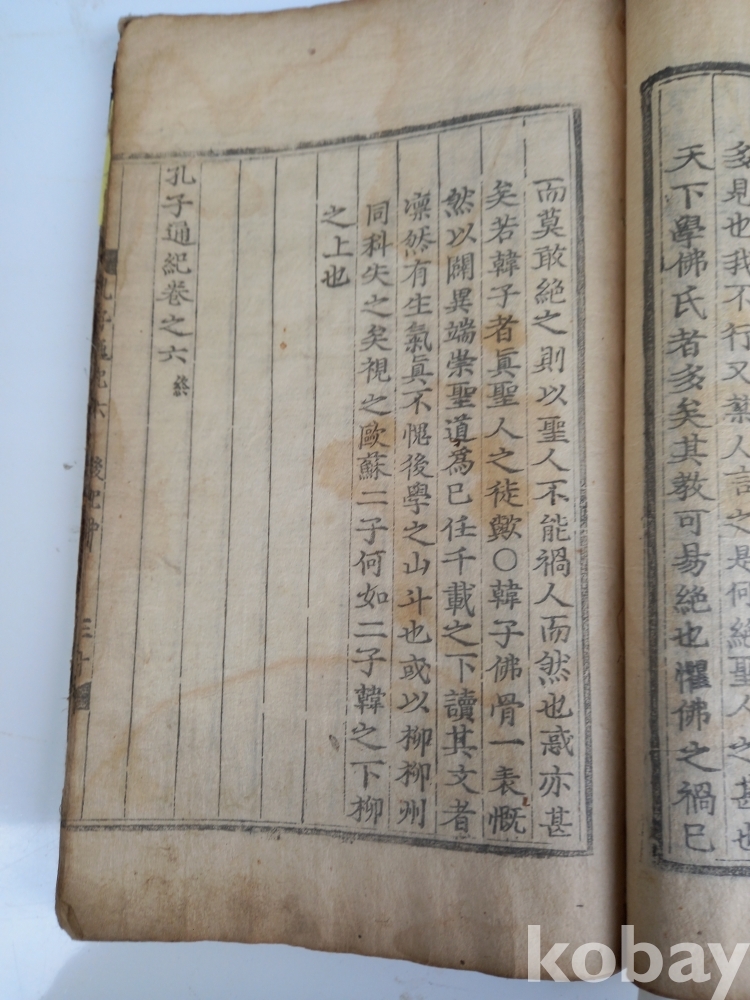 多見也我不行又
人言之是何絶聖人之甚也
天下學佛氏者多矣其教可易絶也懼佛之禍已
而莫敢絶之則以聖人不能禍人而然也惑亦甚
矣若韓子者眞聖人之徒歟○韓子佛骨一表慨
然以闢異端崇聖道爲已任千載之下讀其文者
凛然有生氣眞不愧後學之山斗也或以柳柳州
同科失之矣視之歐蘇二子何如二子韓之下柳
之上也
孔子通紀卷之六 終
kobay